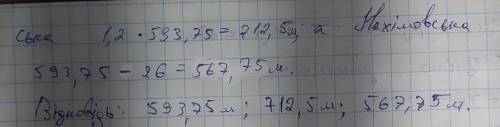 ська 1,2 · 593,75 = 712,5м, а Нахімовська
593,75 - 26 = 567,75 м.
Відповідь: 593,75 м; 712,5 м; 567,75 м.